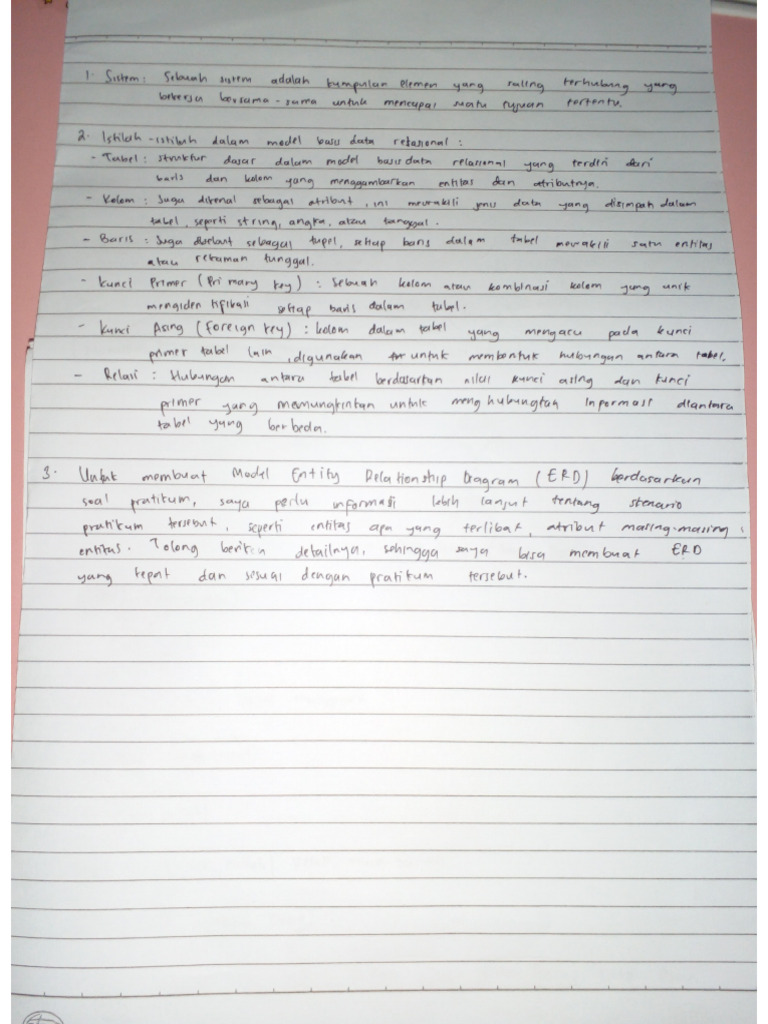 1. Sistem : Sebuah sistem adalah kumpulan elemen yang saling terhubung yang
bekerja bersama-sama untuk mencapai suatu tujuan tertentu.
2. Istilah-istilah dalam model basis data relasional :
- Tabel : struktur dasar dalam model basis data relasional yang terdiri dari
baris dan kolom yang menggambarkan entitas dan atributnya.
- Kolom : Juga dikenal sebagai atribut, ini mewakili jenis data yang disimpan dalam
tabel, seperti string, angka, atau tanggal.
- Baris : Juga disebut sebagai tupel, setiap baris dalam tabel mewakili satu entitas
atau rekaman tunggal.
- Kunci Primer (Primary key) : Sebuah kolom atau kombinasi kolom yang unik
mengidentifikasi setiap baris dalam tabel.
- Kunci Asing (Foreign key) : kolom dalam tabel yang mengacu pada kunci
primer tabel lain, digunakan untuk membentuk hubungan antara tabel.
- Relasi : Hubungan antara tabel berdasarkan nilai kunci asing dan kunci
primer yang memungkinkan untuk menghubungkan informasi diantara
tabel yang berbeda.
3. Untuk membuat Model Entity Relationship Diagram (ERD) berdasarkan
soal pratikum, saya perlu informasi lebih lanjut tentang skenario
pratikum tersebut, seperti entitas apa yang terlibat, atribut masing-masing
entitas. Tolong berikan detailnya, sehingga saya bisa membuat ERD
yang tepat dan sesuai dengan pratikum tersebut.